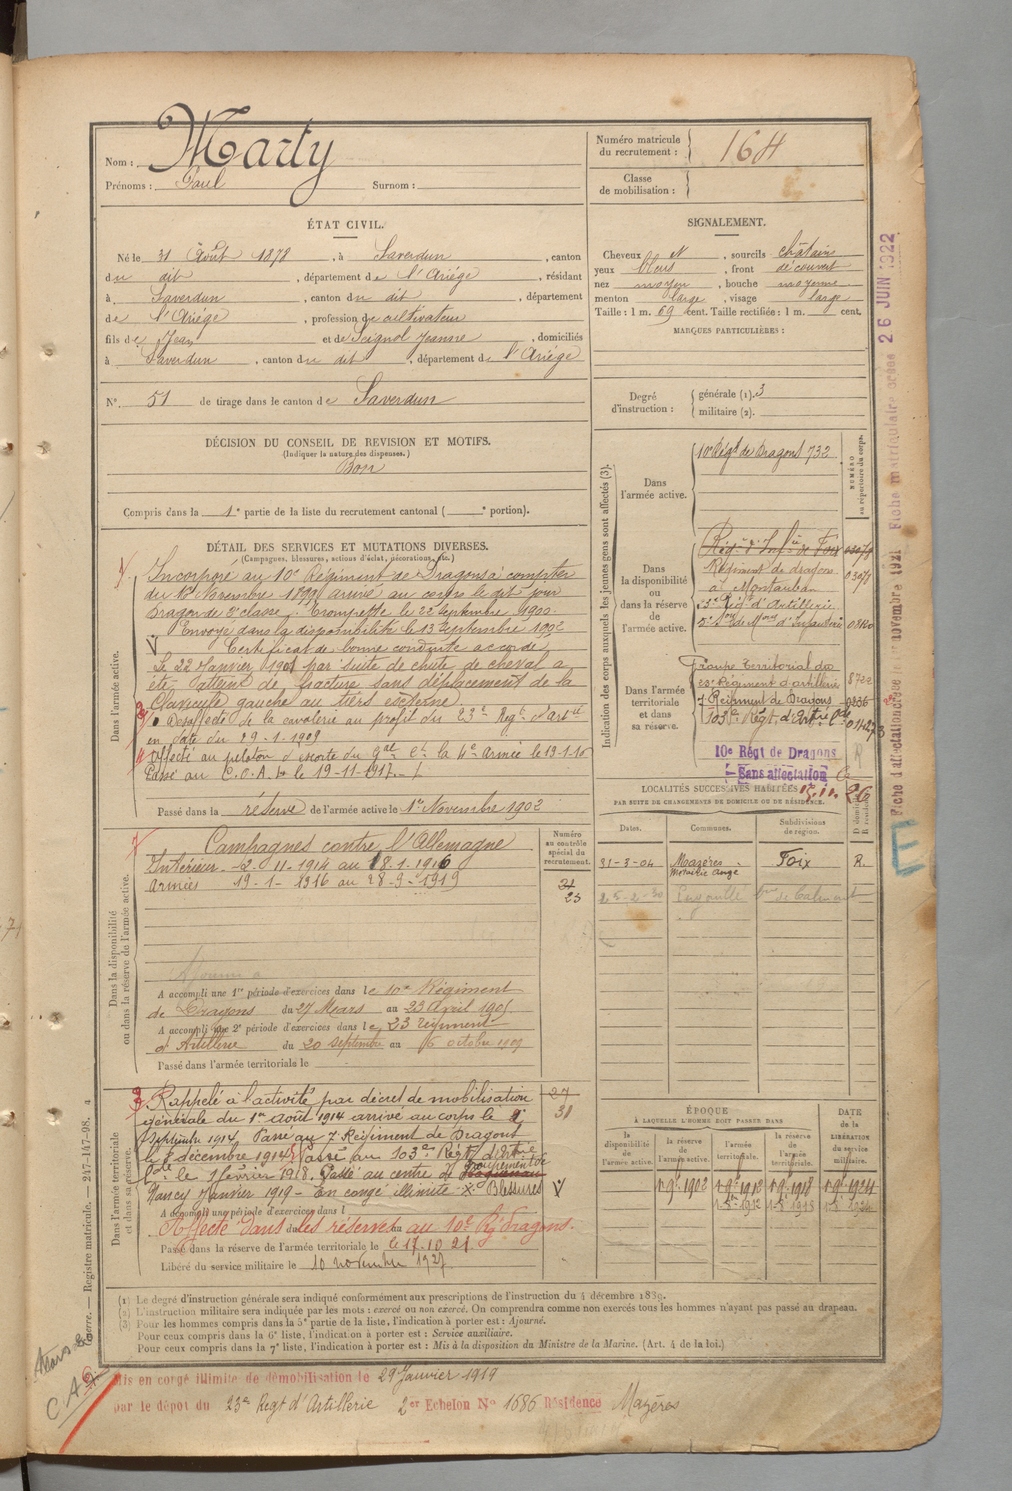 Nom : Marty
Prénoms : Paul Surnom :
Numéro matricule du recrutement : 164
Classe de mobilisation :
ÉTAT CIVIL.
Né le 31 Août 1878, à Saverdun, canton
du dit, département de l'Ariége, résidant
à Saverdun, canton du dit, département
de l'Ariége, profession de cultivateur
fils de Jean et de Saignol Jeanne, domiciliés
à Saverdun, canton du dit, département de l'Ariége
N° 51 de tirage dans le canton de Saverdun
SIGNALEMENT.
Cheveux N, sourcils châtains
yeux bleus, front découvert
nez moyen, bouche moyenne
menton large, visage large
Taille : 1 m. 69 cent. Taille rectifiée : 1 m. cent.
MARQUES PARTICULIÈRES :
Degré d'instruction : générale (1). 3
militaire (2).
DÉCISION DU CONSEIL DE REVISION ET MOTIFS.
(Indiquer la nature des dispenses.)
Bon
Compris dans la 1e partie de la liste du recrutement cantonal ( e portion).
DÉTAIL DES SERVICES ET MUTATIONS DIVERSES.
(Campagnes, blessures, actions d'éclat, décorations, etc.)
Dans l'armée active.
Incorporé au 10e Régiment de Dragons à compter
du 16 Novembre 1899 arrivé au corps le dit jour
Dragon de 2e classe. Trompette le 22 Septembre 1900.
Envoyé dans la disponibilité le 13 Septembre 1902
Certificat de bonne conduite accordé
Le 22 Janvier 1901 par suite de chute de cheval a
été atteint de fracture sans déplacement de la
Clavicule gauche au tiers externe.
Désaffecté de la cavalerie au profit du 23e Régt d'artie
en date du 29-1-1909
Affecté au peloton d'escorte du Gal Ct la 4e Armée le 13-1-16
Passé au C.O.A. le 19-11-1917
Passé dans la réserve de l'armée active le 1er Novembre 1902
Indication des corps auxquels les jeunes gens sont affectés (3).
NUMÉRO au répertoire du corps.
Dans l'armée active.
10e Régt de Dragons 732
Dans la disponibilité ou dans la réserve de l'armée active.
Régt d'Infie de Foix
Régiment de dragons 03071
à Montauban
23e Régt d'Artillerie
Dans l'armée territoriale et dans sa réserve.
Groupe territorial du
23e Régiment d'artillerie
7 Régiment de Dragons
103e Régt d'Artie Lde
10e Régt de Dragons
Sans affectation
Fiche d'affectation créée le novembre 1921 Fiche matriculaire créée 26 JUIN 1922
LOCALITÉS SUCCESSIVES HABITÉES
PAR SUITE DE CHANGEMENTS DE DOMICILE OU DE RÉSIDENCE.
Dates. Communes. Subdivisions de région. D domicile. R résidence.
31-3-04 Mazères Foix R.
25-2-30
Dans la disponibilité ou dans la réserve de l'armée active.
Numéro au contrôle spécial du recrutement.
Campagnes contre l'Allemagne
Intérieur 2-11-1914 au 18-1-1916
Armées 19-1-1916 au 28-9-1919
23
A accompli une 1re période d'exercices dans le 10e Régiment
de Dragons du 27 Mars au 23 avril 1905
A accompli une 2e période d'exercices dans le 23 régiment
d'Artillerie du 20 septembre au 6 octobre 1909
Passé dans l'armée territoriale le
Dans l'armée territoriale et dans sa réserve.
Rappelé à l'activité par décret de mobilisation
générale du 1er août 1914 arrivé au corps le 2
Septembre 1914. Passé au 7e Régiment de Dragons
le 1 décembre 1914. Passé au 103e Régt d'Artie
Lde le 1 février 1918. Passé au centre de groupement de
Nancy Janvier 1919 - En congé illimité Blessures
31
A accompli une période d'exercices dans l
Affecté dans les réserves au 10e Rg dragons.
Passé dans la réserve de l'armée territoriale le 17.10.21
Libéré du service militaire le 10 novembre 1927
ÉPOQUE À LAQUELLE L'HOMME DOIT PASSER DANS
la disponibilité de l'armée active. la réserve de l'armée active. l'armée territoriale. la réserve de l'armée territoriale.
DATE de la LIBÉRATION du service militaire.
1-9-1902 1-9-1912 1-9-1918 1-9-1924
(1) Le degré d'instruction générale sera indiqué conformément aux prescriptions de l'instruction du 4 décembre 1889.
(2) L'instruction militaire sera indiquée par les mots : exercé ou non exercé. On comprendra comme non exercés tous les hommes n'ayant pas passé au drapeau.
(3) Pour les hommes compris dans la 5e partie de la liste, l'indication à porter est : Ajourné.
Pour ceux compris dans la 6e liste, l'indication à porter est : Service auxiliaire.
Pour ceux compris dans la 7e liste, l'indication à porter est : Mis à la disposition du Ministre de la Marine. (Art. 4 de la loi.)
Guerre. — Registre matricule. — 247-147-98.
Mis en congé illimité de démobilisation le 29 Janvier 1919
par le dépôt du 23e Régt d'Artillerie 2er Echelon N° 1686 Résidence Mazères